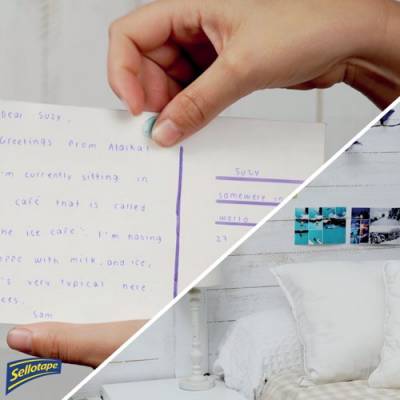 Dear Suzy,
Greetings from Alaska!
I'm currently sitting in
café that is called
the ice café. I'm having
with milk, and ice,
it's very typical here
Sam
Suzy
somewere in
world
27
Sellotape